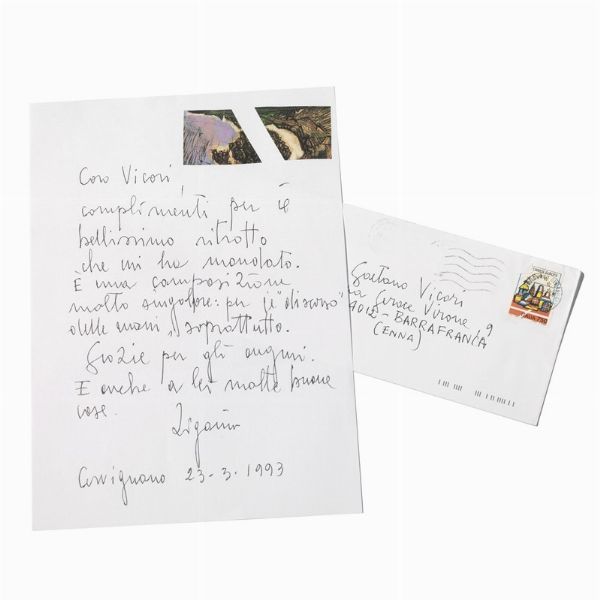 Caro Vicari,
complimenti per il
bellissimo ritratto
che mi ha mandato.
È una composizione
molto singolare: per il "discorso"
delle mani, soprattutto.
Grazie per gli auguri.
E anche a lei molte buone
cose.
Zigaina
Cervignano 23-3-1993
Gaetano Vicari
Via Verone, 9
94012 - BARRAFRANCA
(ENNA)
ITALIA 750